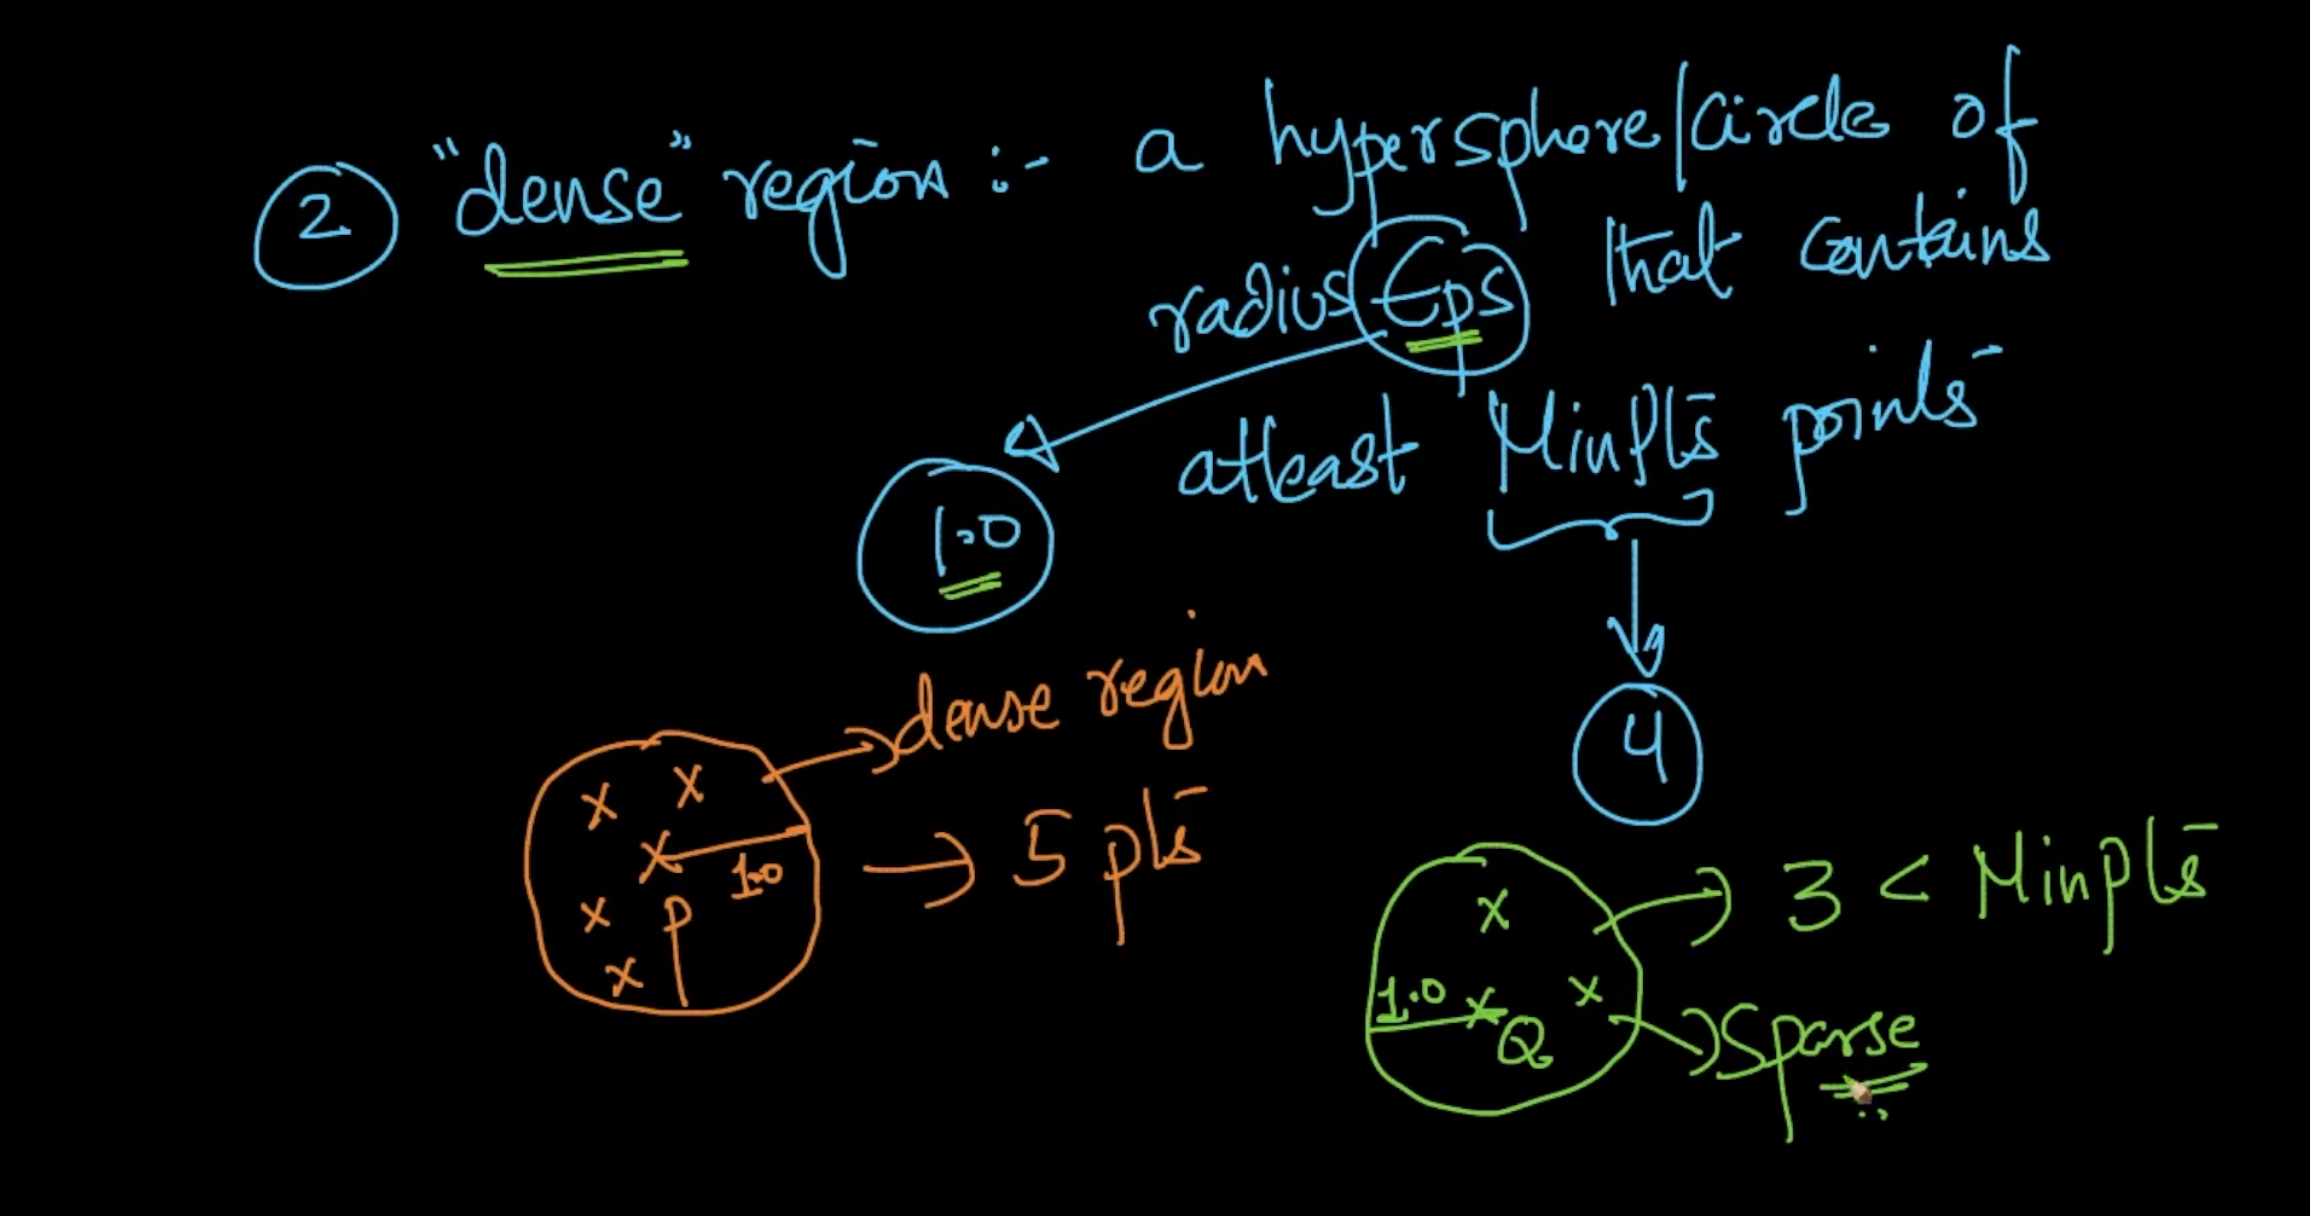 2 "dense" region :- a hypersphere/circle of
radius Eps that contains
atleast MinPts points
1.0
4
dense region
x x
x 1.0
x p
x
5 pts
x
1.0 x Q x
3 < MinPts
Sparse